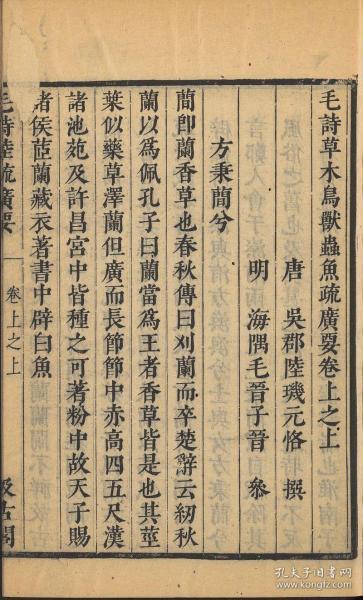 毛詩草木鳥獸蟲魚疏廣要卷上之上
唐　吳郡陸璣元恪　撰
明　海隅毛晉子晉　參
方秉蕑兮
蕑即蘭香草也春秋傳曰刈蘭而卒楚辭云紉秋
蘭以為佩孔子曰蘭當為王者香草皆是也其莖
葉似藥草澤蘭但廣而長節節中赤高四五尺漢
諸池苑及許昌宮中皆種之可著粉中故天子賜
諸侯茝蘭藏衣著書中辟白魚
毛詩陸疏廣要
卷上之上
汲古閣
孔夫子旧书网